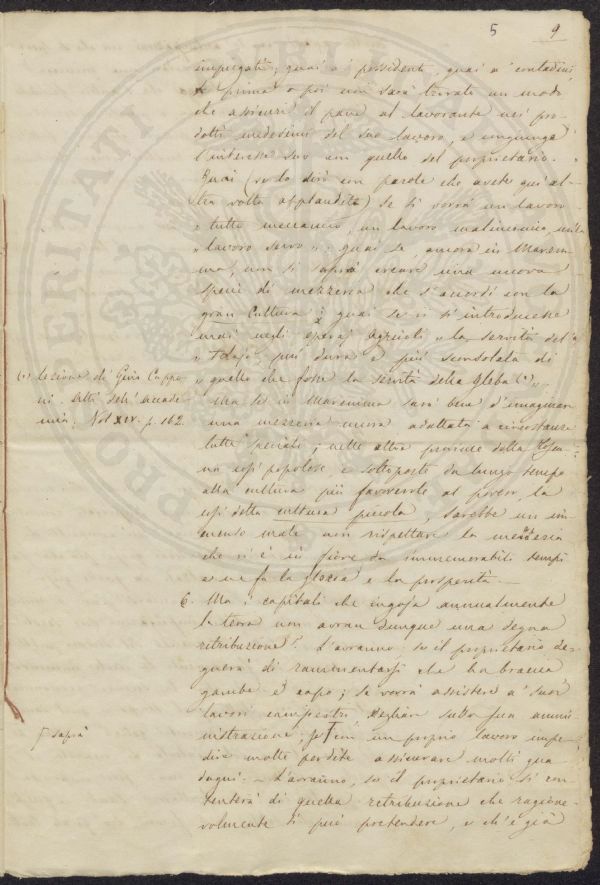 5 9
impiegati; guai a' possidenti, guai a' contadini
se prima o poi non sarà trovato un modo
che assicuri il pane al lavorante nei pro-
dotti medesimi del suo lavoro, e congiunga
l'interesse suo con quello del proprietario.
Guai (ve lo dirò con parole che avete qui al-
tra volta applaudite) se si vorrà un lavoro
„ tutto meccanico, un lavoro malinconico, un
„ lavoro servo „: guai se, ancora in Marem-
ma, non si saprà creare una nuova
specie di mezzeria che s'accordi con la
gran Cultura; guai se vi si introducesse
mai negli operaj agricoli „ la servitù del
„ più dura e più sconsolata di
(*) lezione di Gino Cappo- „ quello che fosse la servitù della Gleba (*) „
ni. Atti dell'accade- Ma se in Maremma sarà bene d'imaginare
mia. Vol XIV. p. 162. una mezzeria nuova adattata a circostanze
tutte speciali; nelle altre provincie della Tosca-
na così popolose e sottoposte da lungo tempo
alla cultura più favorevole al povero, la
così detta cultura piccola, sarebbe un im-
menso male non rispettare la mezzeria
che vi è in fiore da immemorabili tempi
e ne fa la gloria e la prosperità. —
6. Ma i capitali che ingoja annualmente
la terra non avran dunque una degna
retribuzione? L'avranno: se il proprietario de-
gnerà di rammentarsi che ha braccia
gambe e capo; se vorrà assistere a' suoi
lavori campestri, vegliare sulla sua ammi-
saprà nistrazione; se con un proprio lavoro impe-
dire molte perdite assicurare molti gua-
dagni. — L'avranno, se il proprietario si con-
tenterà di quella retribuzione che ragione-
volmente si può pretendere, e ch'è già
PRO VERITATI REVELAN